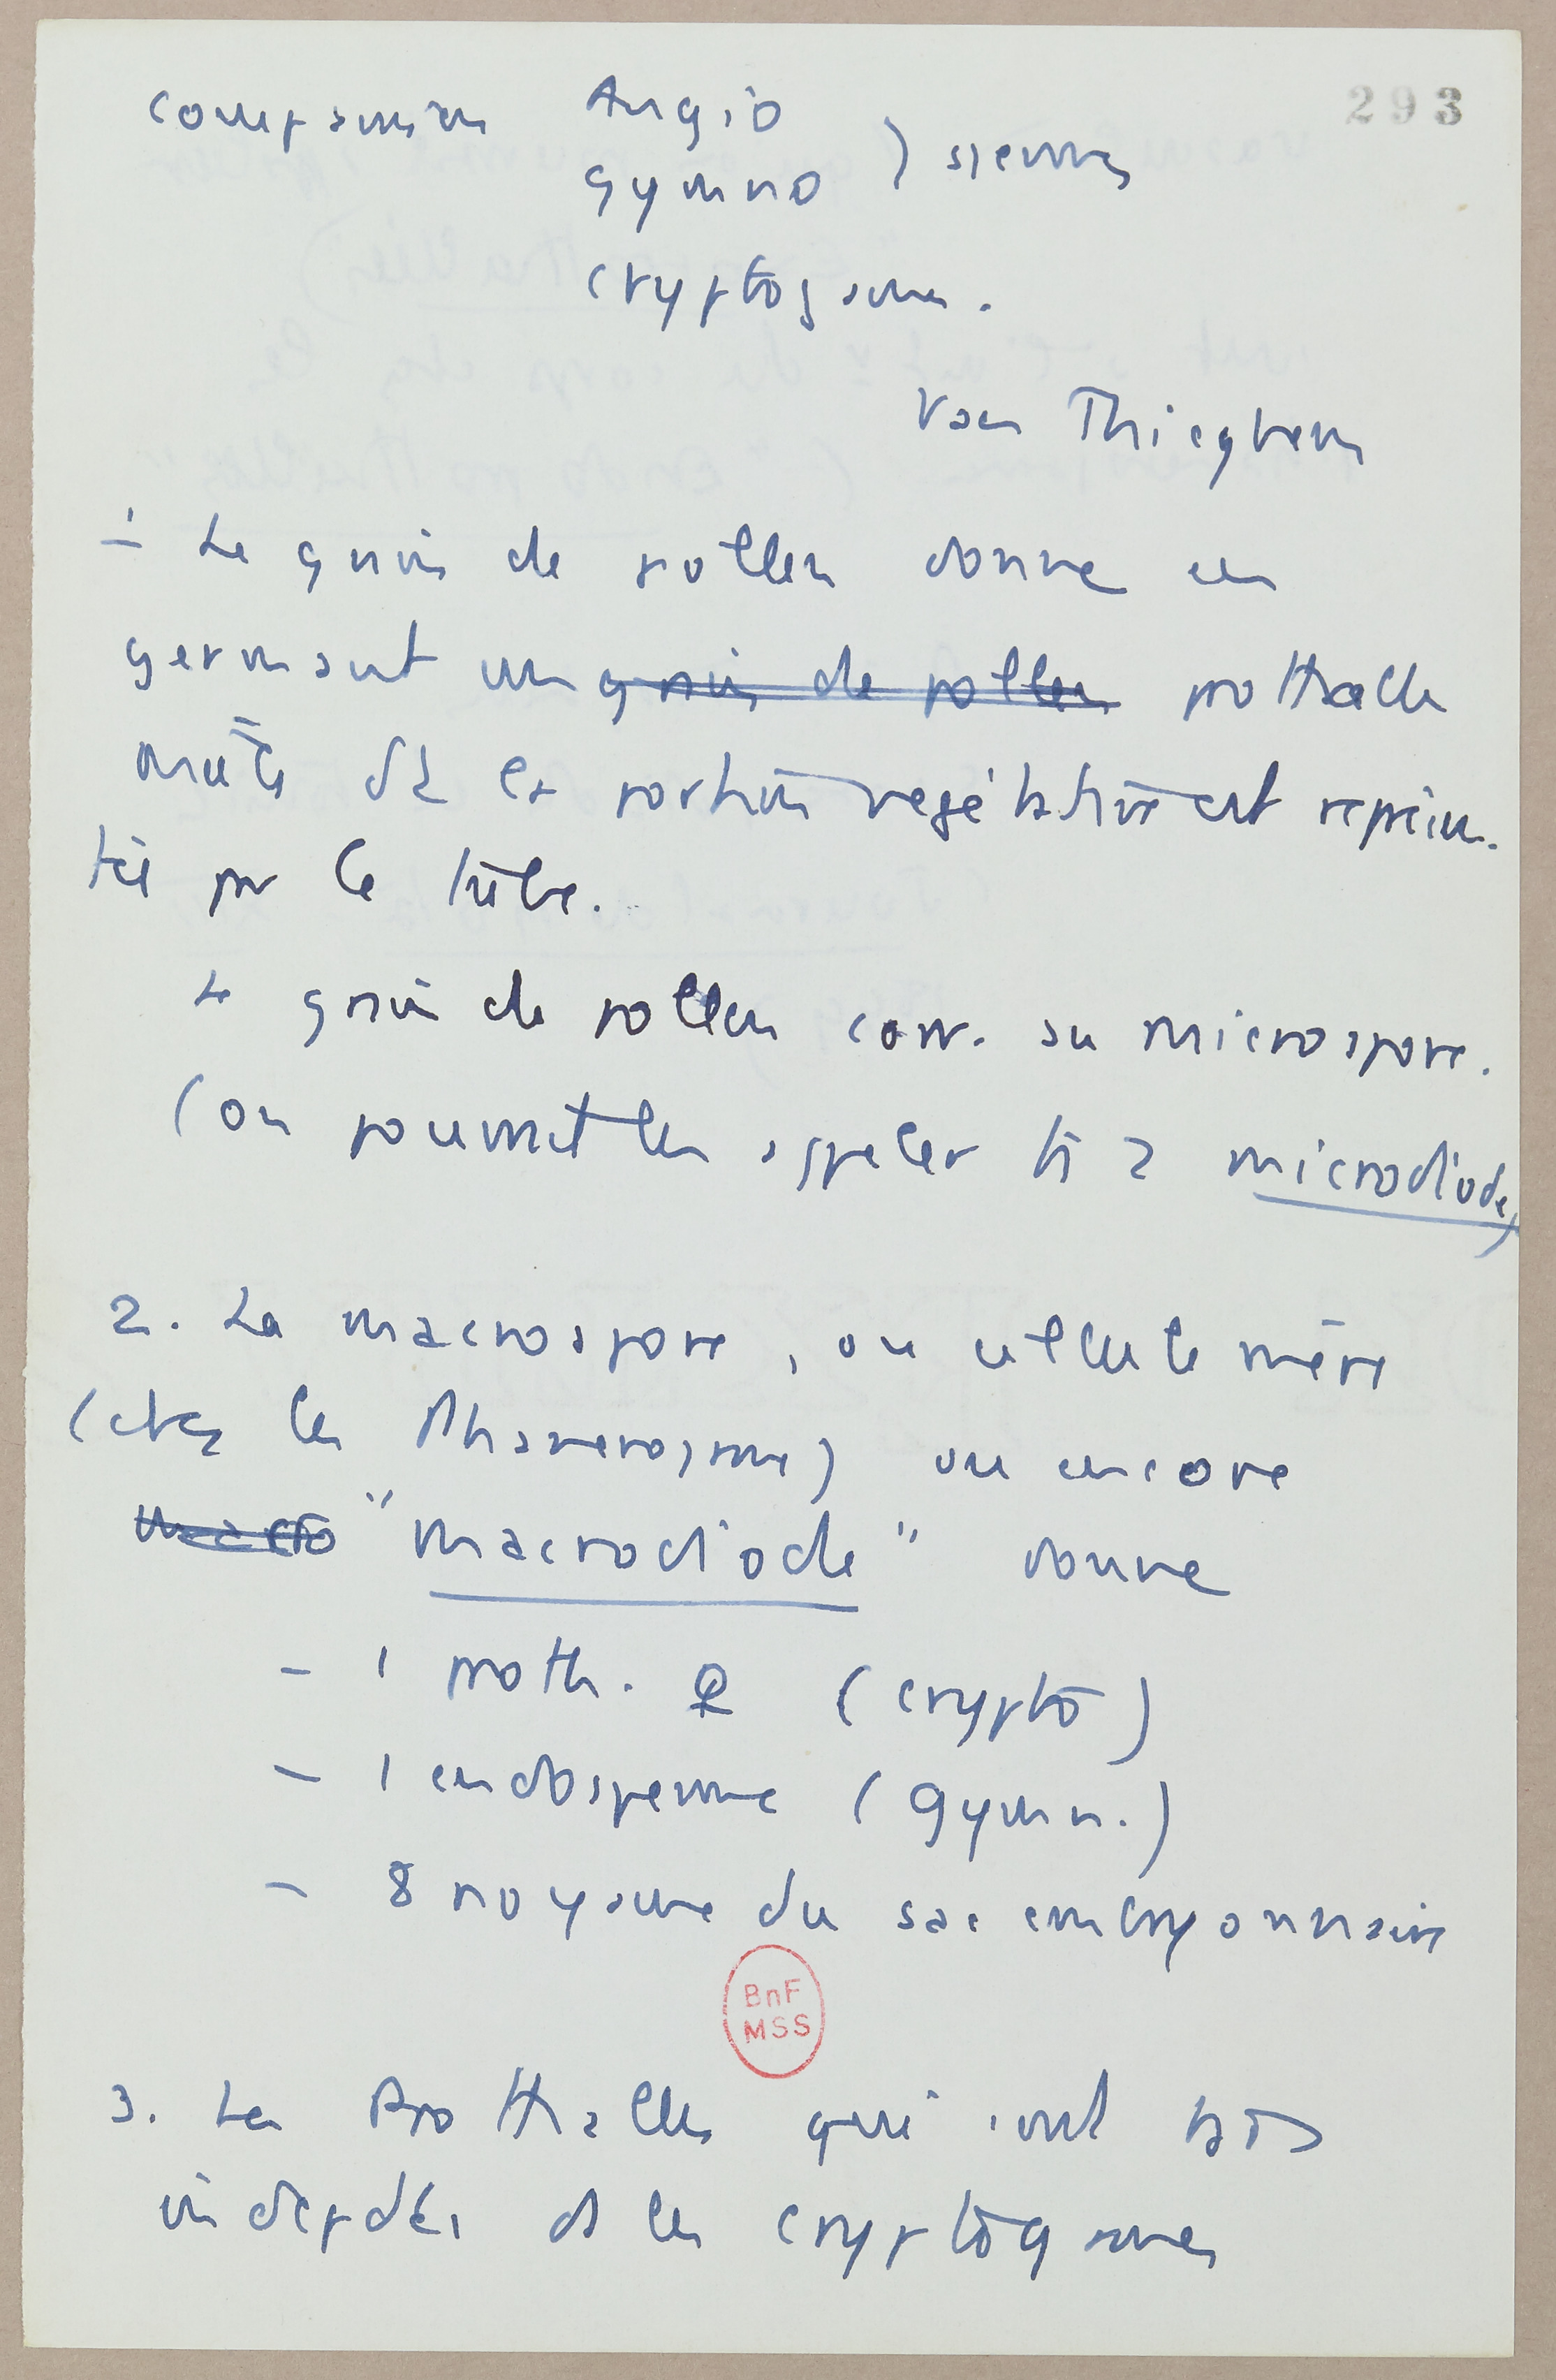 293
comparaison Angio
Gymno ) spermes
cryptogame.
Van Thieghem
1 Le grain de pollen donne en
germant un grain de pollen prothalle
mâle dt la portion végétative est représen-
tée par le tube.
Le grain de pollen corr. au microspore.
(on pourrait les appeler ts 2 microdiodes)
2. La macrospore, ou cellule mère
(chez les Phanérogames) ou encore
macro "macrodiode" donne
- 1 proth. ♀ (crypto)
- 1 endosperme (Gymn.)
- 8 noyaux du sac embryonnaire
BnF
MSS
3. Les Prothalles qui sont
indepdts ds les cryptogames